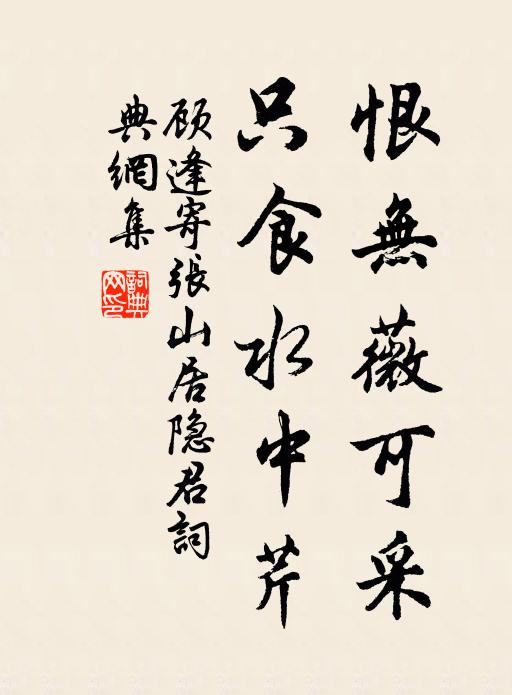 恨無薇可采
只食水中芹
顾逢寄張山居隐君詞
典網集
詞典网印